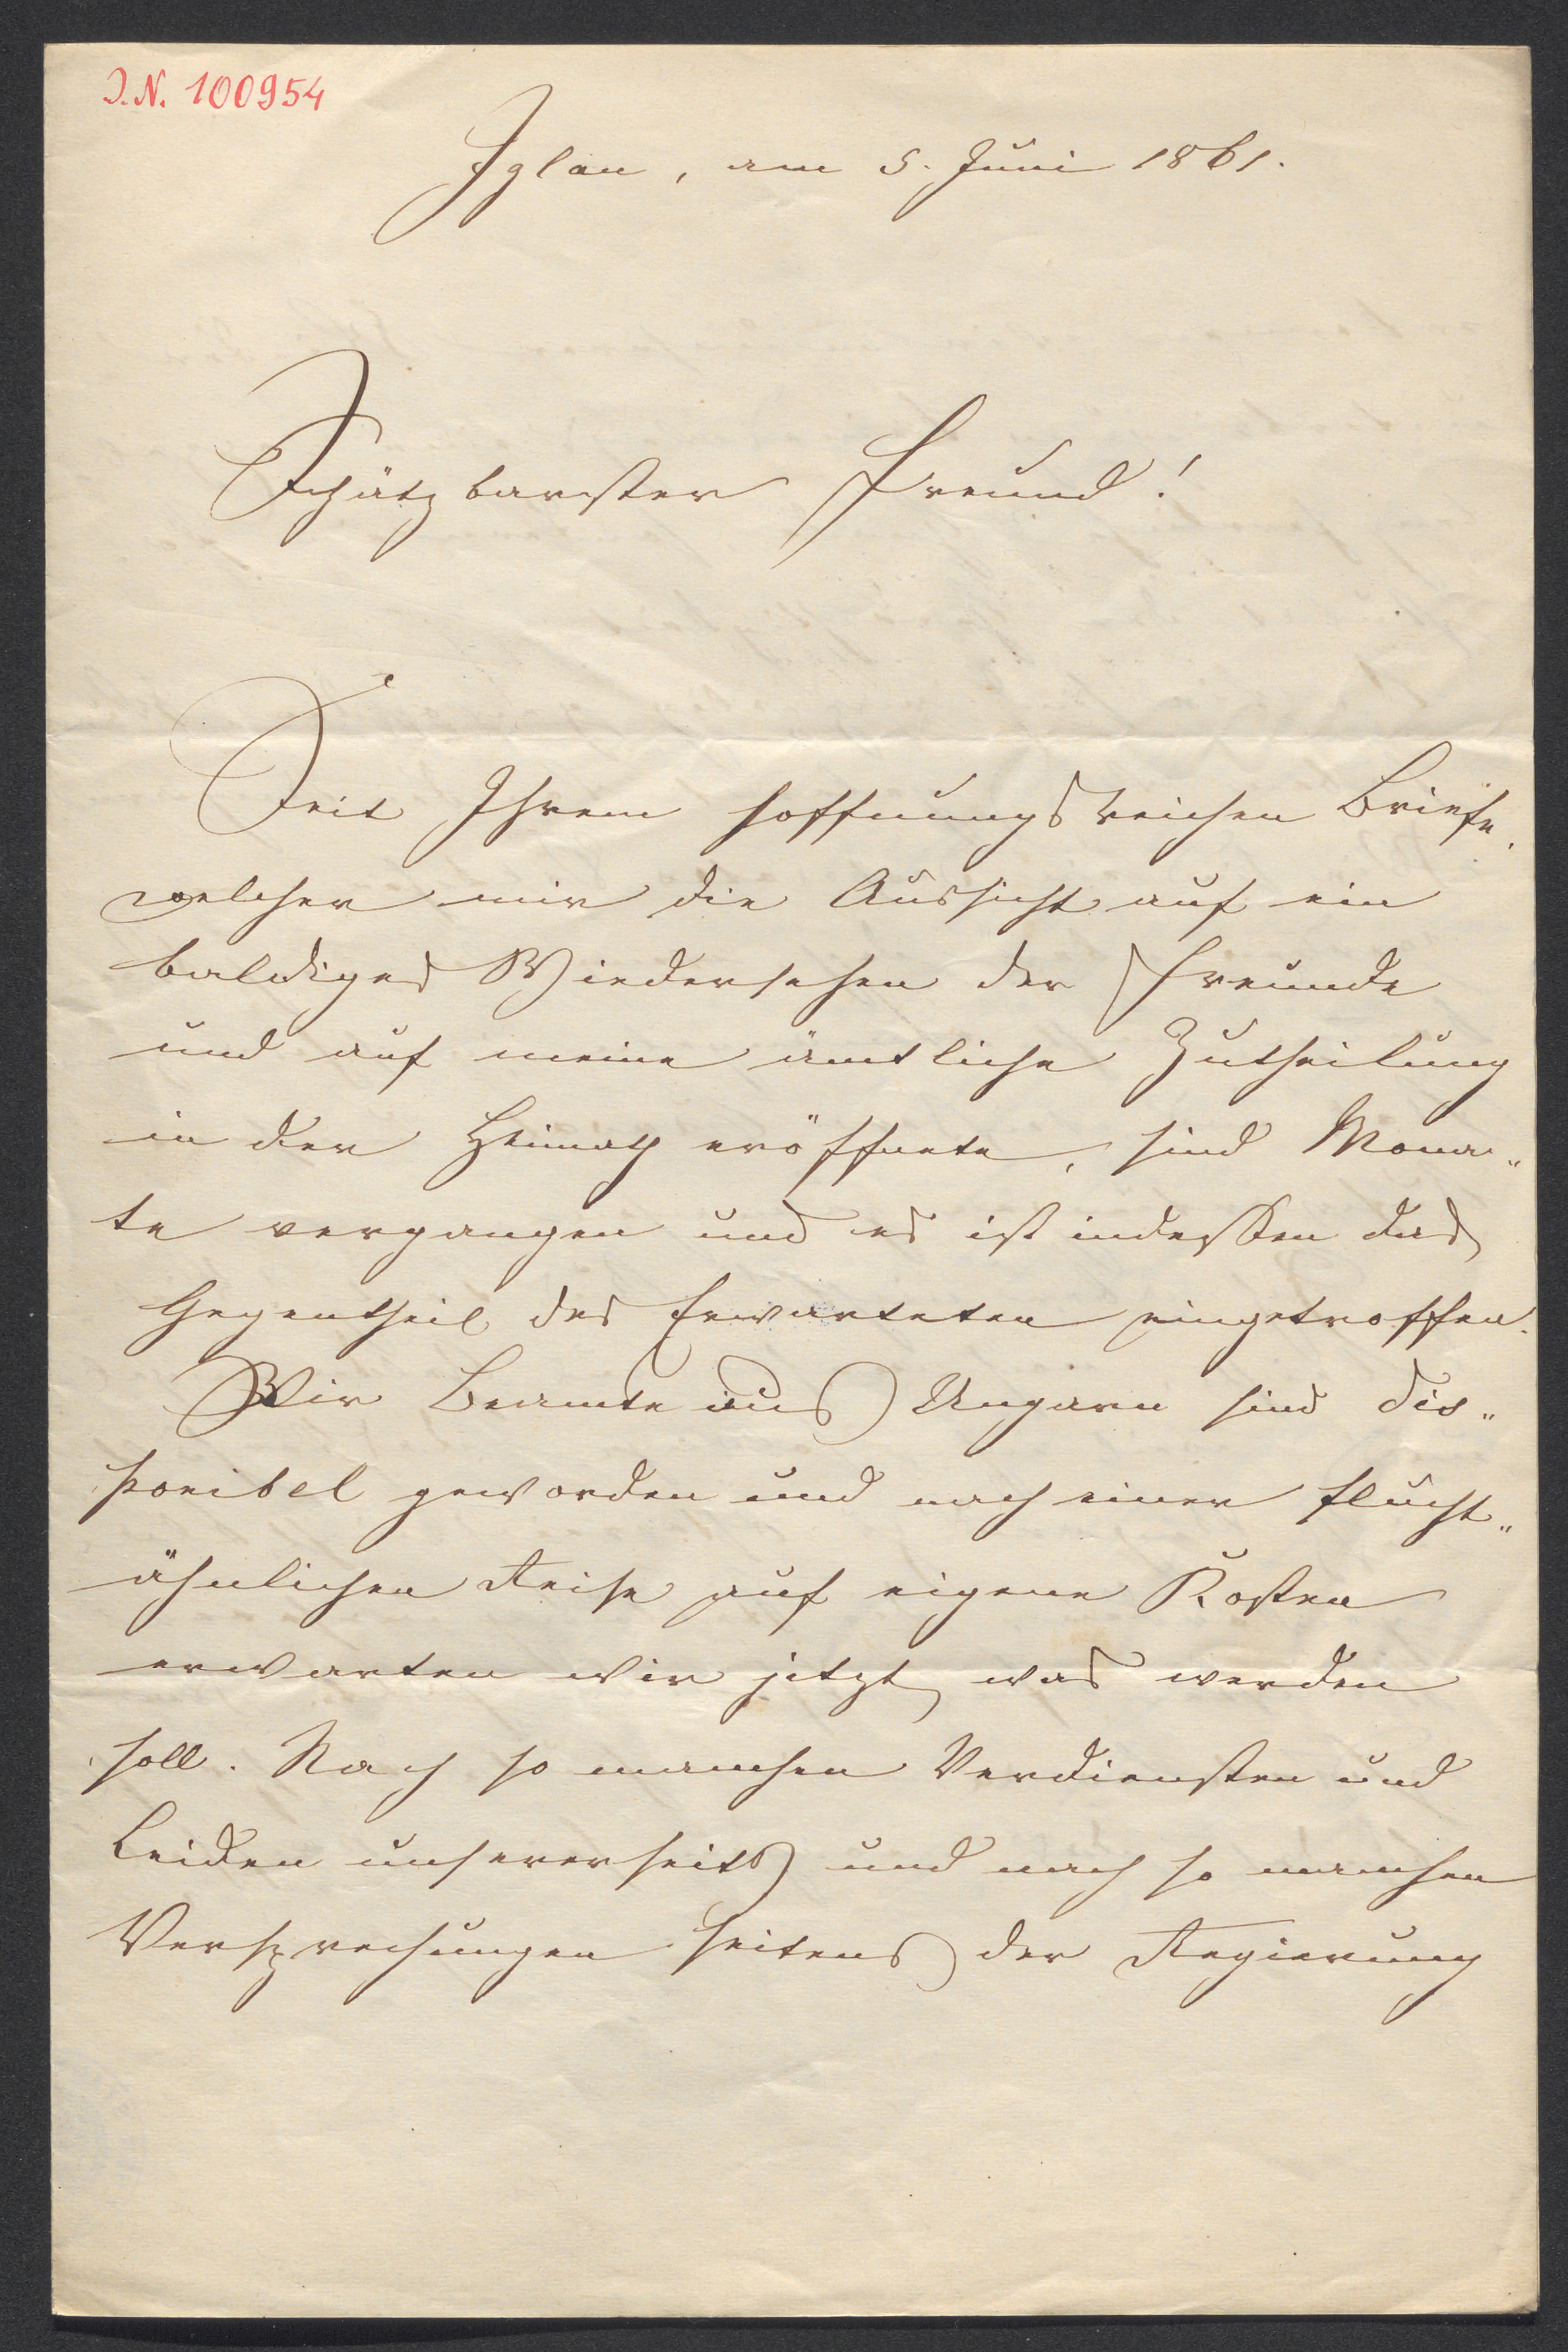 J.N. 100954
Iglau, am 5. Juni 1861.
Schätzbarster Freund!
Seit Ihrem hoffnungsreichen Briefe,
welcher mir die Aussicht auf ein
baldiges Wiedersehen der Freunde
und auf meine ämtliche Zutheilung
in der Heimath eröffnete, sind Mona„
te vergangen und es ist indessen das
Gegentheil des Erwarteten eingetroffen.
Wir Beamte aus Ungarn sind dis„
ponibel geworden und nach einer flucht„
ähnlichen Reise auf eigene Kosten
erwarten wir jetzt, was werden
soll. Nach so manchen Verdiensten und
Leiden unsererseits und nach so manchen
Versprechungen seitens der Regierung